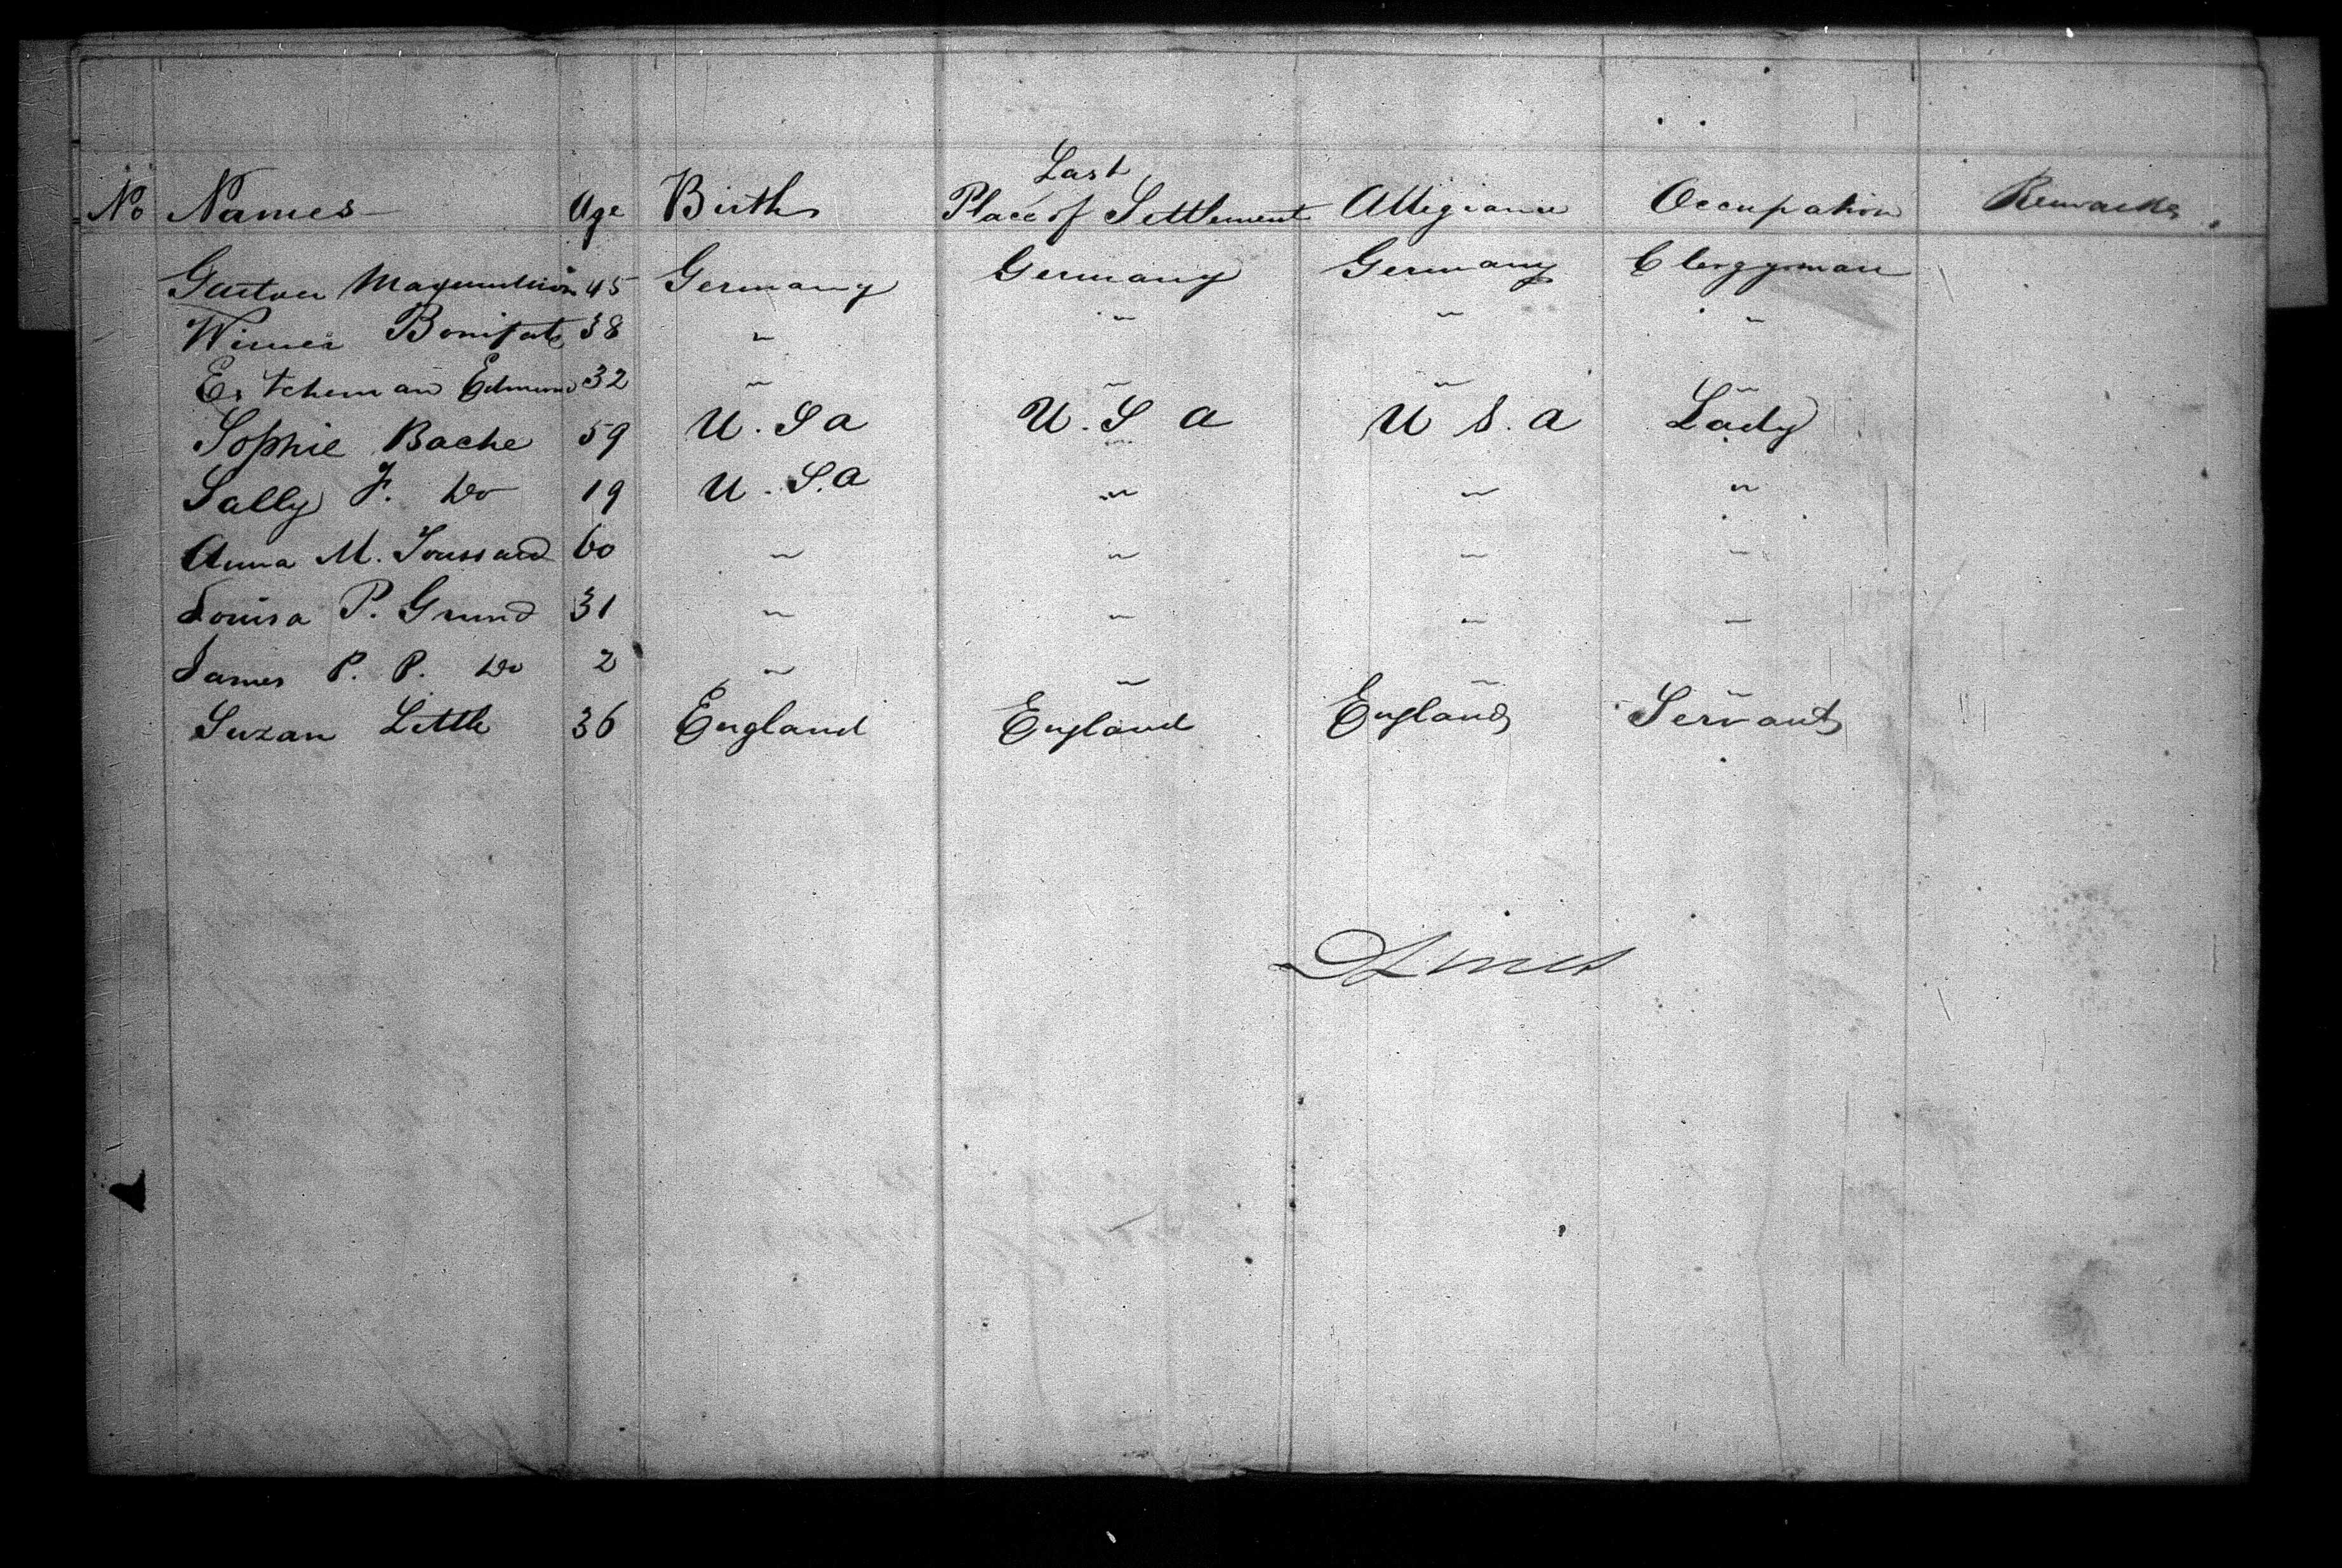 No Names Age Birth Last Place of Settlement Allegiance Occupation Remarks
45 Germany Germany Germany Clergyman
Bonifat 38 " " " "
Edmund 32 " " " "
Sophie Bache 59 U.S a U.S a U S. a Lady
Sally F. Do 19 U.S.a " " "
Anna M. Toussard 60 " " " "
Louisa P. Grund 31 " " " "
James P. P. Do 2 " " " "
Suzan Little 36 England England England Servant